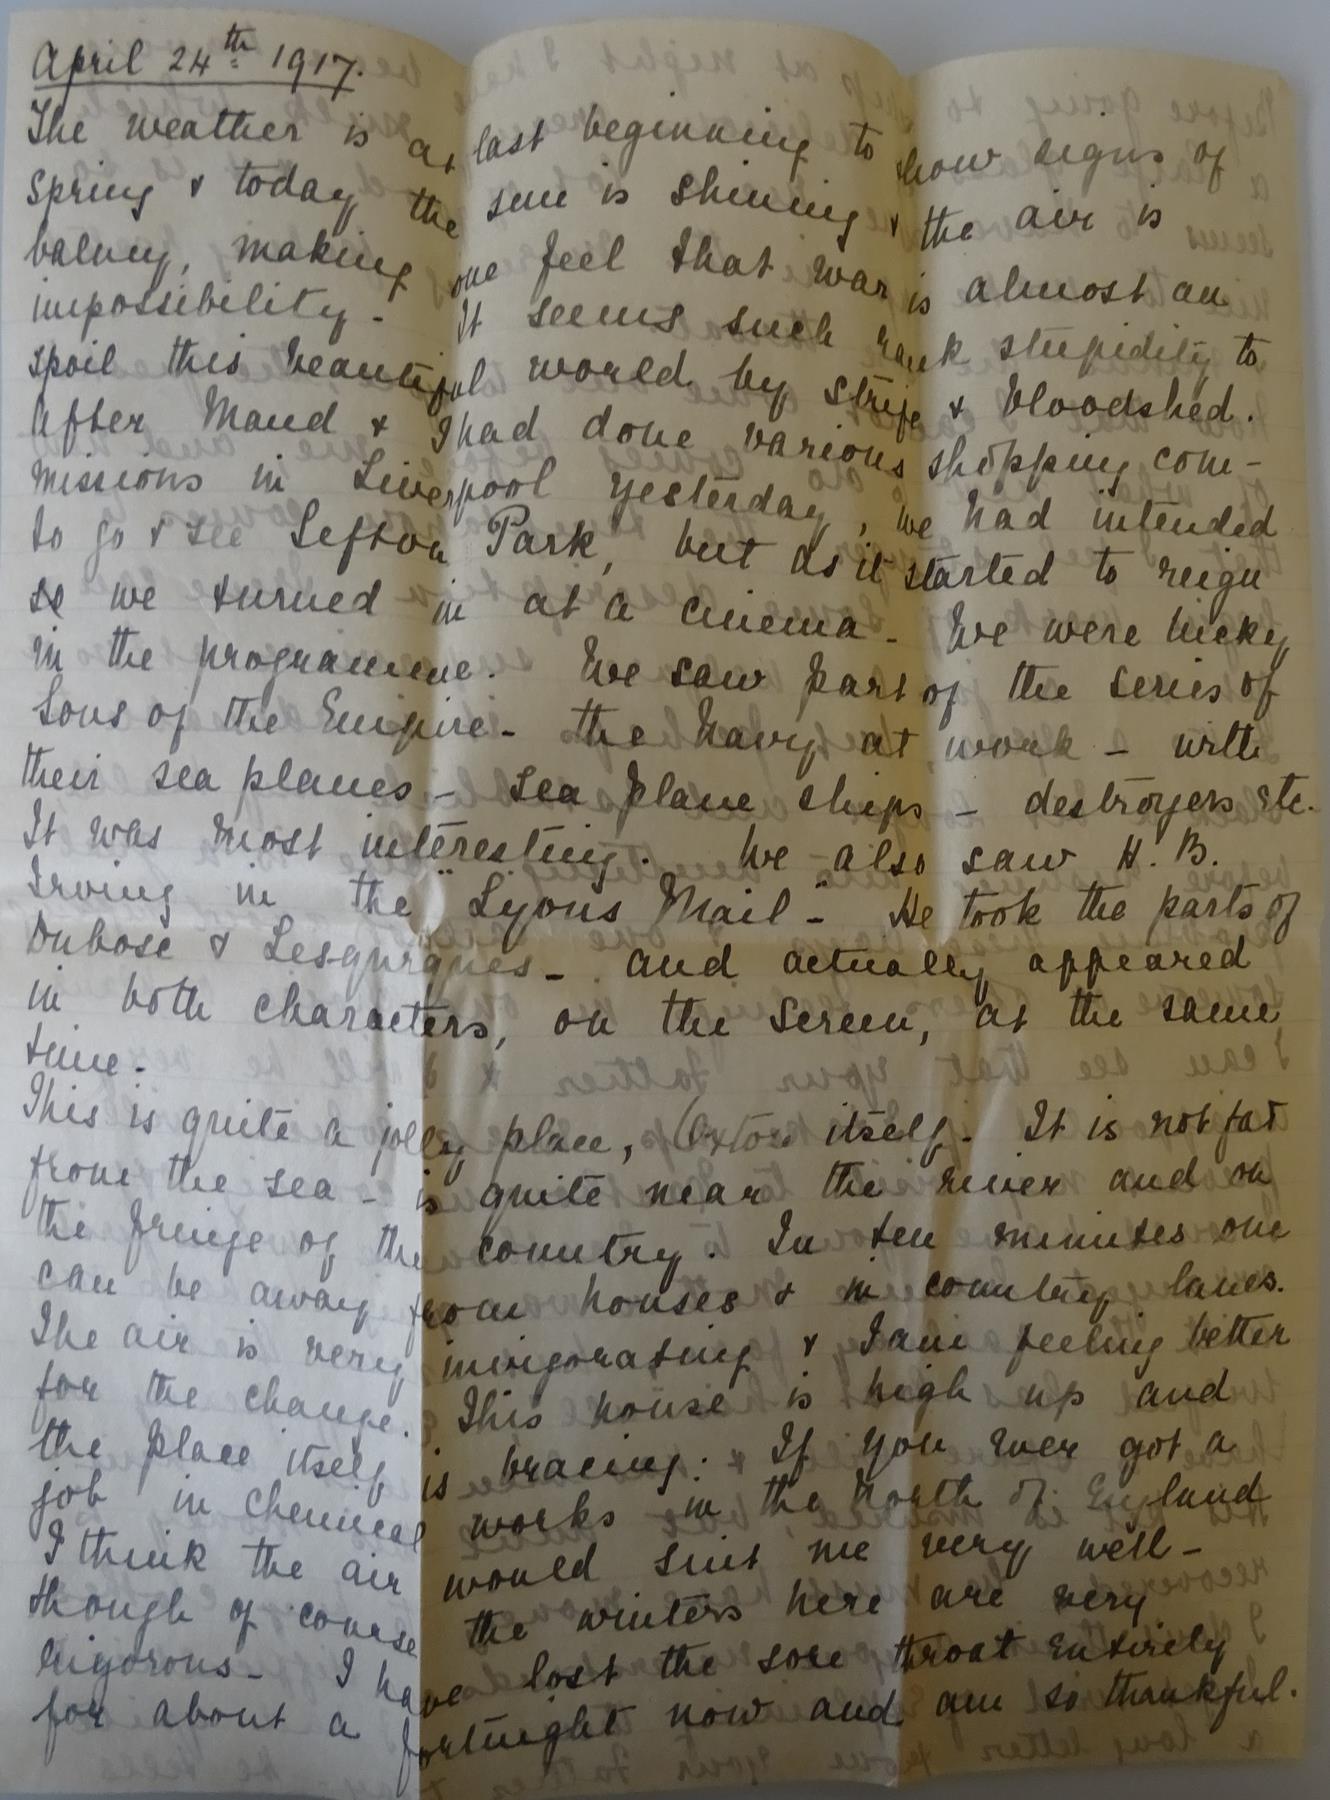 April 24th 1917.
The weather is at last beginning to show signs of
spring & today the sun is shining & the air is
balmy, making one feel that war is almost an
impossibility. It seems such rank stupidity to
spoil this beautiful world by strife & bloodshed.
After Maud & I had done various shopping com-
missions in Liverpool yesterday, we had intended
to go & see Sefton Park, but as it started to reign
so we turned in at a cinema - We were lucky
in the programme. We saw part of the series of
Sons of the Empire - the Navy at work - with
their sea planes - sea plane ships - destroyers etc.
It was most interesting. We also saw H. B.
Irving in the "Lyons Mail" - He took the parts of
Dubosc & Lesgurques - and actually appeared
in both characters, on the screen, at the same
time -
This is quite a jolly place, Oxton itself. It is not far
from the sea - is quite near the river and on
the fringe of the country. In ten minutes one
can be away from houses & in country lanes.
The air is very invigorating & I am feeling better
for the change. This house is high up and
the place itself is bracing. If you ever got a
job in chemical works in the North of England
I think the air would suit me very well -
though of course the winters here are very
rigorous - I have lost the sore throat entirely
for about a fortnight now and am so thankful.